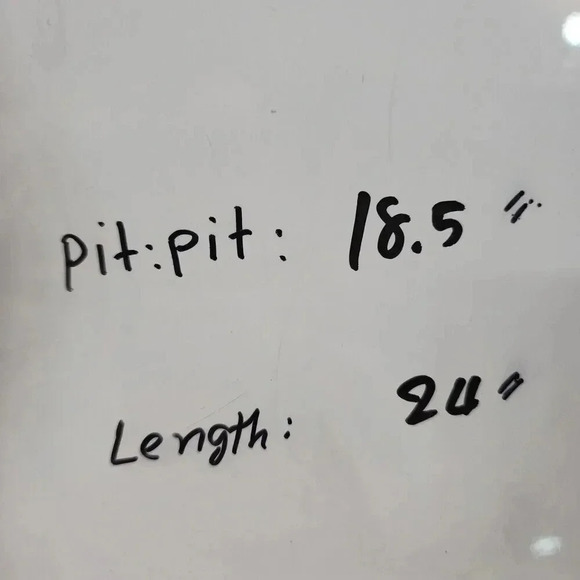 pit:pit: 18.5"
Length: 24"